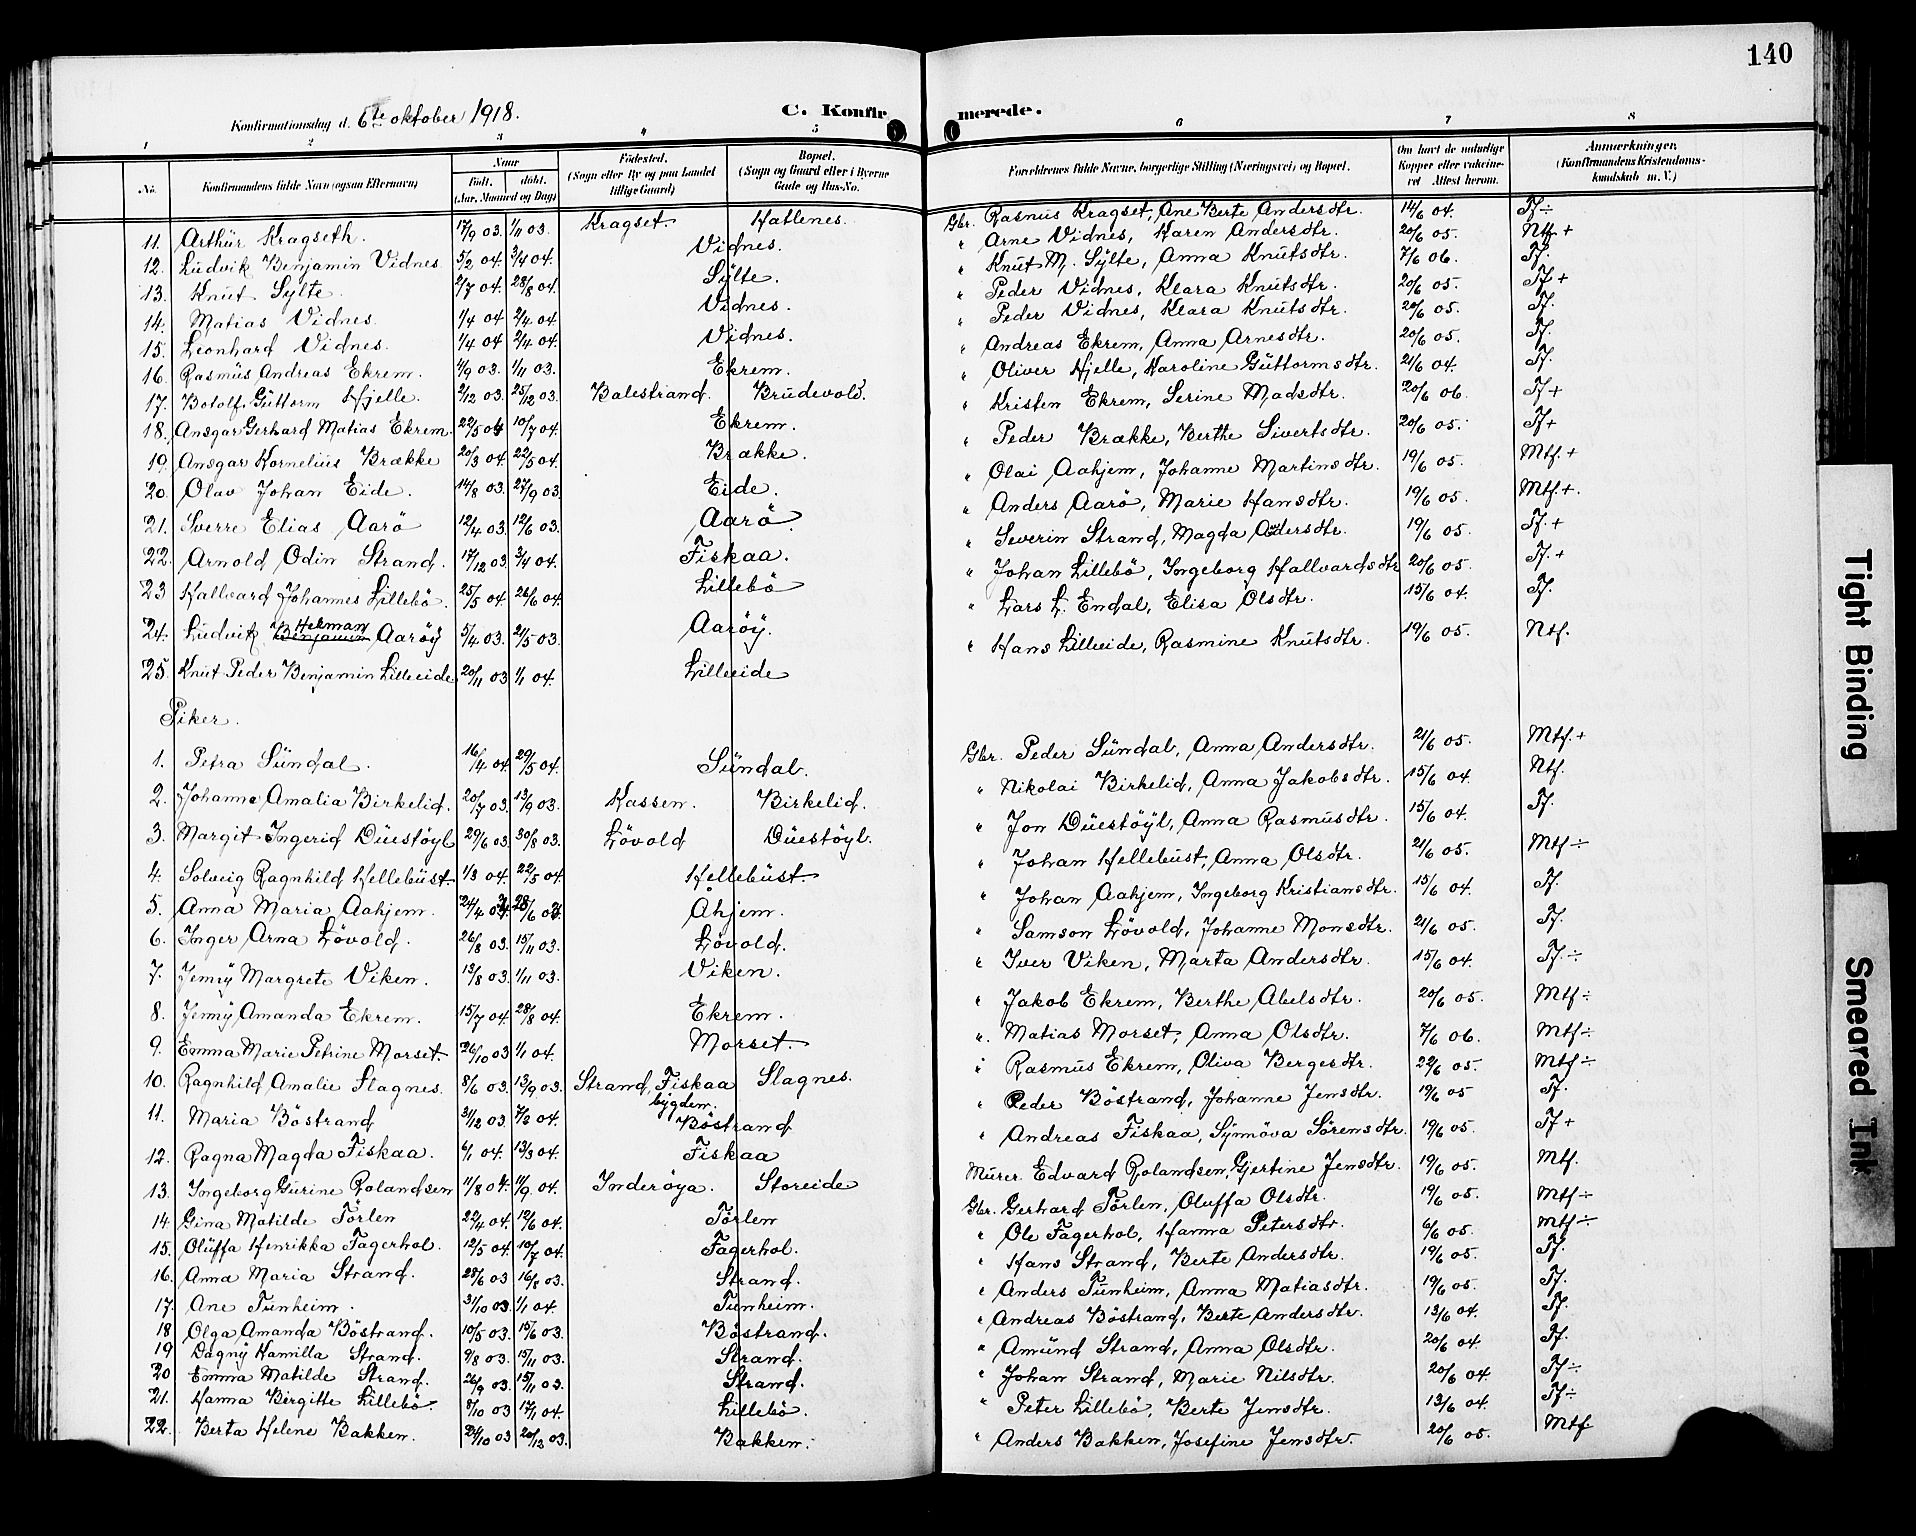 140
Konfirmationsdag d. 6te oktober 1918. C. Konfirmerede.
1 2 3 4 5 6 7 8
No. Konfirmandens fulde Navn (ogsaa Efternavn) Naar født. døbt. (Aar, Maaned og Dag) Fødested. (Sogn eller By og paa Landet tillige Gaard) Bopæl. (Sogn og Gaard eller i Byerne Gade og Hus-No. Forældrenes fulde Navne, borgerlige Stilling (Næringsvei) og Bopæl. Om havt de naturlige Kopper eller vaccineret Attest herom. Anmærkninger. (Konfirmandens Kristendomskundskab m. V.)
11. Arthür Kragseth. 17/9 03. 1/11 03. Kragset. Hatlenes. Gbr. Rasmus Kragset, Ane Berte Andersdtr. 14/6 04. Tf ÷
12. Ludvik Benjamin Vidnes 5/2 04. 3/4 04. Vidnes. " Arne Vidnes, Karen Andersdtr. 20/6 05. Ntf. +
13. Knut Sylte. 2/7 04. 28/8 04. Sylte. " Knut M. Sylte, Anna Knutsdtr. 7/6 06. Tf.
14. Matias Vidnes 1/4 04 2/4 04. Vidnes. " Peder Vidnes, Klara Knutsdtr. 20/6 05. Tf +
15. Leonhard Vidnes. 1/4 04 2/4 04. Vidnes. " Peder Vidnes, Klara Knutsdtr. 20/6 05. Tf.
16. Rasmus Andreas Ekrem. 4/9 03. 1/11 03. Ekrem. " Andreas Ekrem, Anna Arnesdtr. 20/6 05. Tf.
17. Botolf Guttorm Hjelle. 2/12 03. 25/12 03. Balestrand. Brudevold. " Oliver Hjelle, Karoline Guttormsdtr. 21/6 04. Tf.
18. Ansgar Gerhard Matias Ekrem. 22/5 04 10/7 04. Ekrem. " Kristen Ekrem, Serine Madsdtr. 20/6 06. Tf +
19. Ansgar Kornelius Brække 20/3 04. 22/5 04. Brække. " Peder Brække, Berthe Sivertsdtr. 20/6 05. Tf +
20. Olav Johan Eide. 14/8 03. 27/9 03. Eide. " Olai Aahjem, Johanne Martinsdtr. 19/6 05. Mtf. +
21. Sverre Elias Aarö 12/4 03. 12/6 03. Aarö. " Anders Aarö, Marie Hansdtr. 19/6 05. Mtf. +.
22. Arnold Odin Strand. 17/12 03. 3/4 04. Fiskaa. " Severin Strand, Magda Andersdtr. 19/6 05. Tf. +
23 Hallvard Johannes Lillebö. 25/5 04. 26/6 04. Lillebö " Johan Lillebö, Ingeborg Hallvardsdtr. 20/6 05. Tf. +
24. Ludvik Benjamin Helman Aaröy 5/4 03. 21/5 03. Aaröy. " Lars L. Endal, Elisa Olsdtr. 15/6 04. Tf.
25. Knut Peder Benjamin Lilleeide 20/11 03 1/1 04. Lilleeide " Hans Lilleeide, Rasmine Knutsdtr. 19/6 05. Ntf.
Piker.
1. Petra Sundal. 16/4 04. 29/5 04. Sundal. Gbr. Peder Sundal, Anna Andersdtr. 21/6 05. Mtf. +
2. Johanne Amalia Birkelid. 20/7 03. 13/9 03. Hassen. Birkelid. " Nikolai Birkelid, Anna Jakobsdtr. 15/6 04. Ntf.
3. Margit Ingerid Duestöyl 29/6 03. 30/8 03. Lövold Duestöyl. " Jon Duestöyl, Anna Rasmusdtr. 15/6 04. Tf.
4. Solveig Ragnhild Hellebust. 1/3 04. 22/5 04. Hellebust. " Johan Hellebust, Anna Olsdtr. 21/6 05. Mtf ÷
5. Anna Maria Aahjem. 24/4 04. 28/6 04. Åhjem. " Johan Aahjem, Ingeborg Kristiansdtr. 15/6 04. Tf.
6. Inger Arna Lövold. 26/8 03. 15/11 03. Lövold. " Samson Lövold, Johanne Monsdtr. 21/6 05. Tf.
7. Jenny Margrete Viken. 13/8 03. 1/11 03. Viken. " Iver Viken, Marta Andersdtr. 15/6 04. Tf. ÷
8. Jenny Amanda Ekrem. 15/7 04. 28/8 04. Ekrem. " Jakob Ekrem, Berthe Abelsdtr. 20/6 05. Mtf ÷
9. Emma Marie Petrine Morset. 26/10 03 1/1 04. Morset. " Matias Morset, Anna Olsdtr. 7/6 06. Mtf ÷
10. Ragnhild Amalie Slagnes. 8/6 03. 13/9 03. Strand, Fiskaa bygden. Slagnes. " Rasmus Ekrem, Oliva Bergesdtr. 22/6 05. Mtf ÷
11. Maria Böstrand 31/12 03. 7/2 04. Böstrand " Peder Böstrand, Johanne Jensdtr. 19/6 05 Tf.
12. Ragna Magda Fiskaa. 6/1 04. 13/3 04. Fiskaa " Andreas Fiskaa, Synnöva Sörensdtr. 19/6 05. Tf +
13. Ingeborg Gurine Rolandsen 11/8 04. 11/9 04. Inderöya. Storeide Murer Edvard Rolandsen, Gjertine Jensdtr. 19/6 05. Mtf.
14. Gina Matilde Törlen 22/4 04. 12/6 04. Törlen Gbr. Gerhard Törlen, Oluffa Olsdtr. 19/6 05. Mtf ÷
15. Oluffa Henrikka Fagerhol. 12/5 04. 10/7 04. Fagerhol. " Ole Fagerhol, Hanna Petersdtr. 6/6 05. Mtf ÷
16. Anna Maria Strand. 28/6 03 16/8 03. Strand. " Hans Strand, Berte Andersdtr. 19/6 05. Tf.
17. Ane Tunheim. 31/10 03. 1/1 04. Tunheim. " Anders Tunheim, Anna Matiasdtr. 19/6 05. Tf.
18 Olga Amanda Böstrand. 10/5 03. 15/6 03. Böstrand. " Andreas Böstrand, Berte Andersdtr. 13/6 04. Tf.
19 Dagny Kamilla Strand. 9/8 03. 15/11 03. Strand. " Amund Strand, Anna Olsdtr. 20/6 04. Tf.
20 Emma Matilde Strand. 26/9 03. 15/11 03. Strand. " Johan Strand, Marie Nilsdtr. 20/6 04 Tf ÷
21. Hanna Birgitte Lillebö. 8/10 03 17/1 04. Lillebö. " Peter Lillebö, Berte Jensdtr. 13/6 04. Tf ÷
22. Berta Helene Bakken. 24/10 03 20/12 03. Bakken. " Anders Bakken, Josefine Jensdtr. 20/6 05. Mtf.
Tight Binding
Smeared Ink